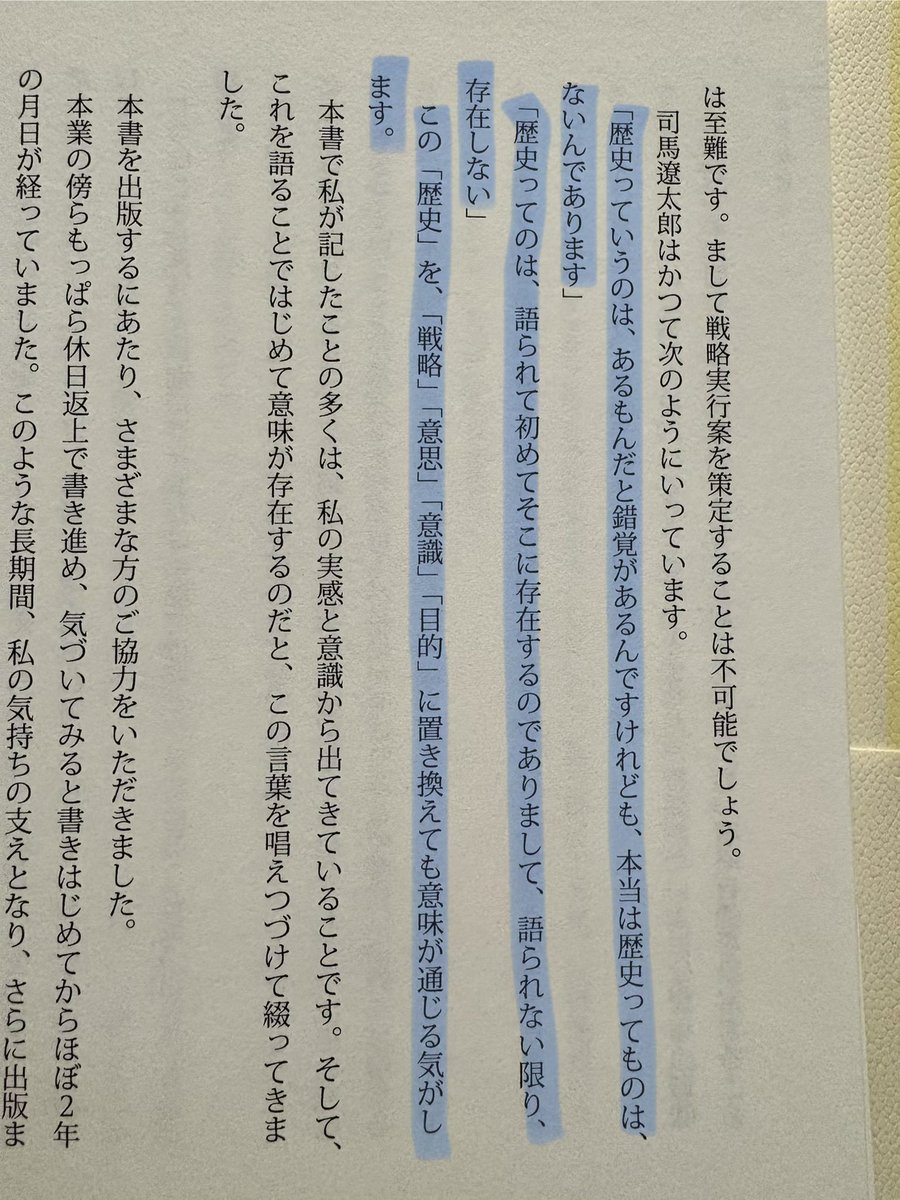 は至難です。まして戦略実行案を策定することは不可能でしょう。
司馬遼太郎はかつて次のようにいっています。
「歴史っていうのは、あるもんだと錯覚があるんですけれども、本当は歴史ってものは、
ないんであります」
「歴史ってのは、語られて初めてそこに存在するのでありまして、語られない限り、
存在しない」
この「歴史」を、「戦略」「意思」「意識」「目的」に置き換えても意味が通じる気がし
ます。
本書で私が記したことの多くは、私の実感と意識から出てきていることです。そして、
これを語ることではじめて意味が存在するのだと、この言葉を唱えつづけて綴ってきま
した。
本書を出版するにあたり、さまざまな方のご協力をいただきました。
本業の傍らもっぱら休日返上で書き進め、気づいてみると書きはじめてからほぼ2年
の月日が経っていました。このような長期間、私の気持ちの支えとなり、さらに出版ま